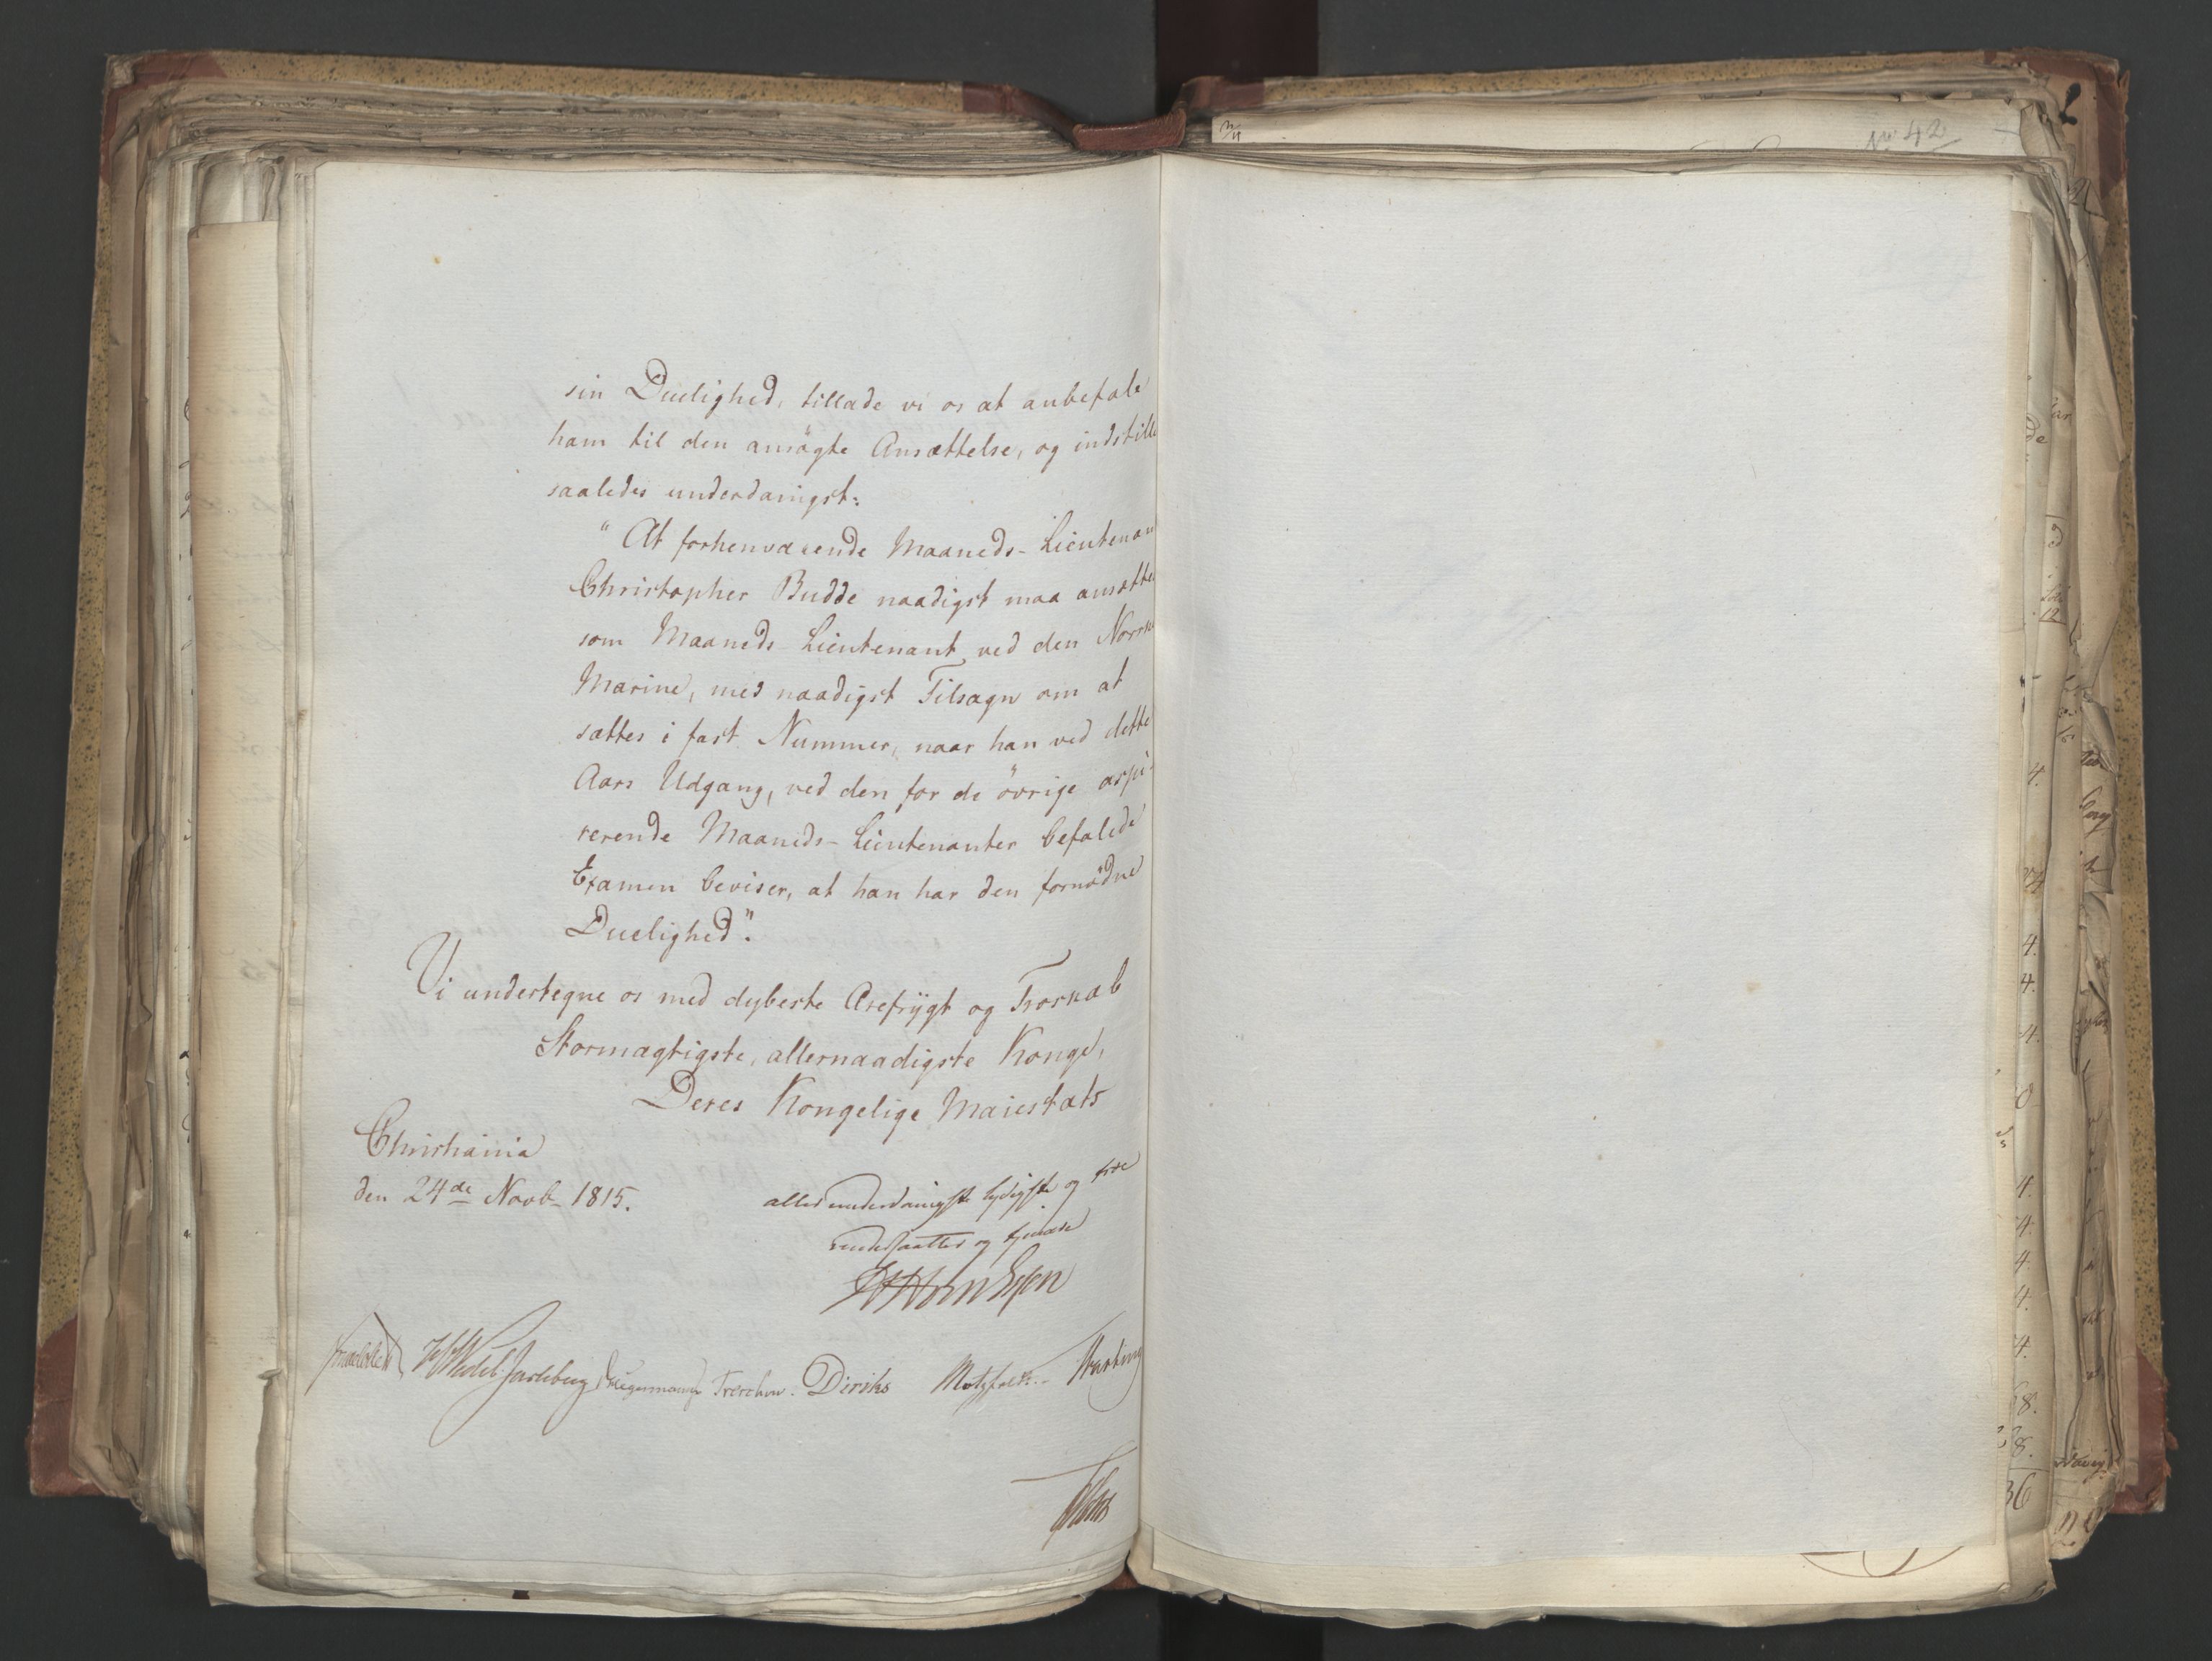 sin Duelighed, tillade vi os at anbefale
ham til den ansøgte Ansættelse, og indstille
saaledes underdanigst:
"At forhenværende Maaneds-Lieutenan
Christopher Budde naadigst maa ansættes
som Maaneds-Lieutenant ved den Norske
Marine, med naadigst Tilsagn om at
sættes i fast Nummer, naar han ved dette
Aars Udgang, ved den for de øvrige aspi-
rerende Maaneds-Lieutenanter befalede
Examen beviser, at han har den fornødne
Duelighed".
Vi undertegne os med dybeste Ærefrygt og Troskab
Stormægtigste, allernaadigste Konge,
Deres Kongelige Maiestæts
Christiania
den 24de Novbr 1815.
allerunderdanigste lydigste og troe
undersaatter og tjenere
Wedel Jarlsberg Treschow. Diriks Motzfeldt. Hartwig
No 42